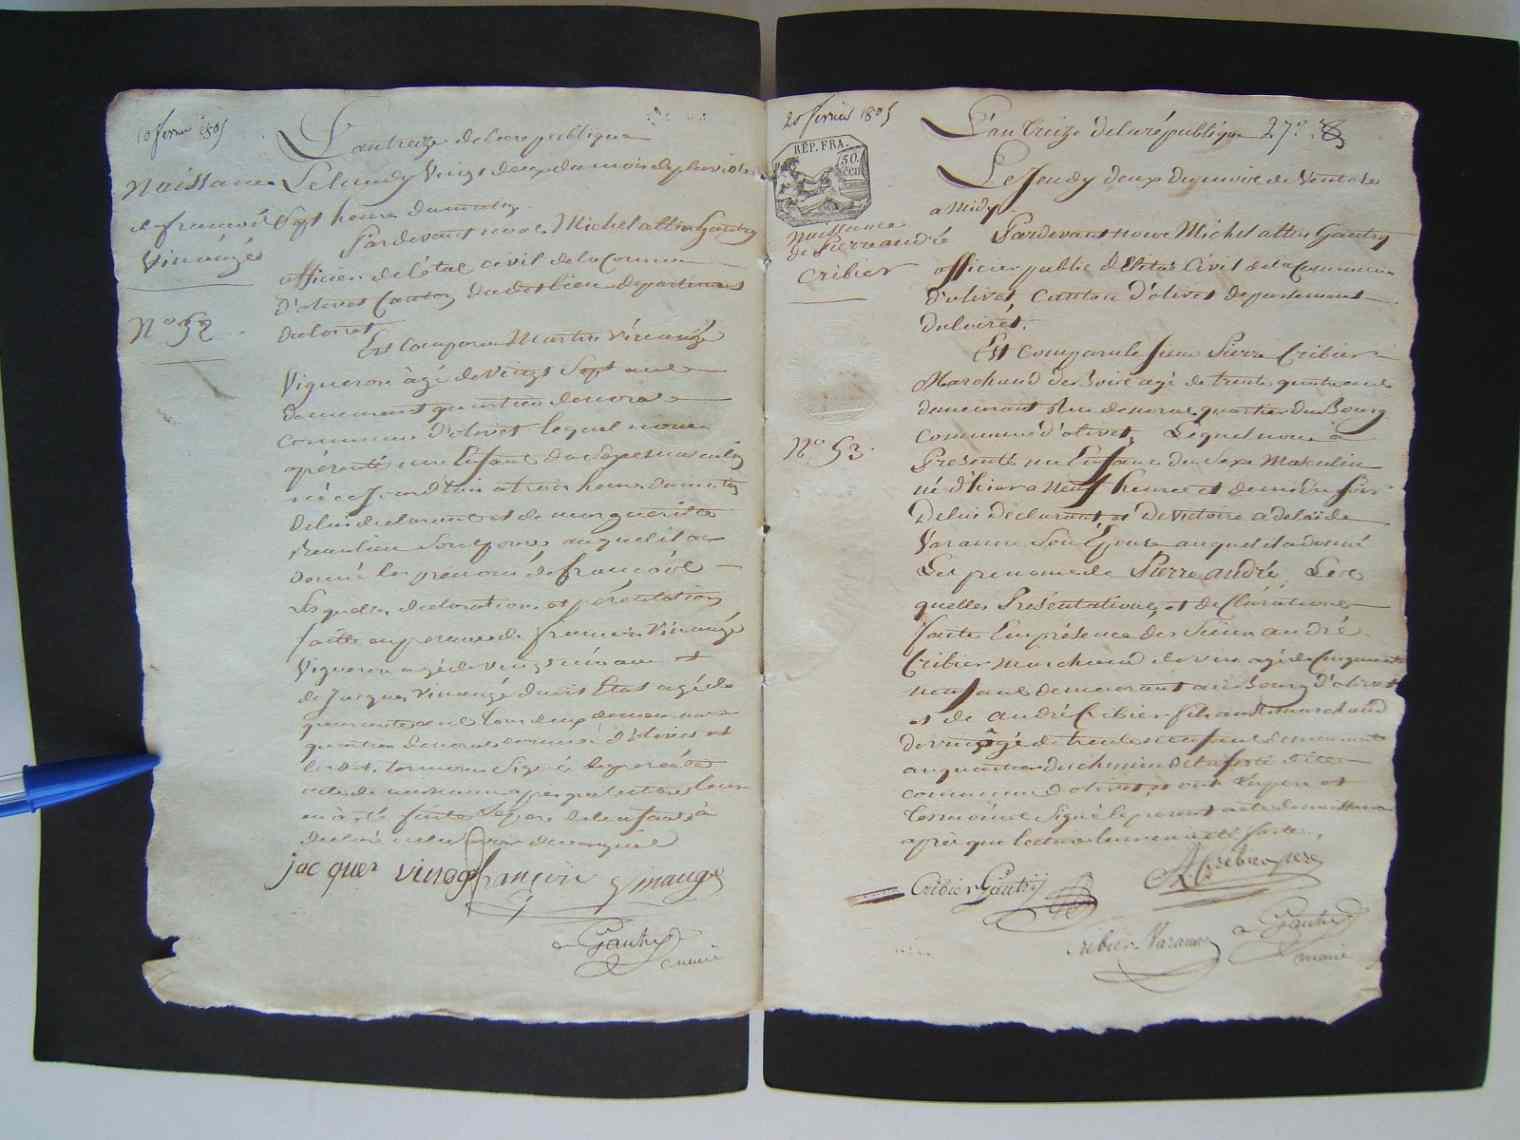 10 fevrier 1805
L'an treize de la republique
Naissance
Le lundy Vingt deux du mois de pluviose
de francois
Sept heure du matin
Vinauzé
Pardevant nous Michel altin Gautry
officier de l'état civil de la Commune
D'olivet Canton dudit lieu departement
N° 52
du loiret
Est Comparu Martin Vinauzé
Vigneron âgé de Vingt Sept ans
demeurant quartier
Commune d'olivet lequel nous
a présenté un Enfant du Sexe masculin
né ce jourd'hui a trois heures du matin
De lui declarant et de margueritte
Beaulieu Son Epouse auquel il a
Donné les prénoms de francois
Lesquelles declaration et présentation
faitte en presence de francois Vinauzé
Vigneron agé de vingt ans et
de Jacques Vinauzé dudit Etat agé de
quarante ans tous deux demeurant
quartier Commune d'olivet et
ont les temoins Signé le present
acte de naissance apres que lecture leur
en a été faitte le pere de l'enfant a
declaré ne
jacques vinog francois Vinauze
a Gautry
maire
20 fevrier 1805
REP. FRA.
50.
cen
L'an treize de la république 27e. 8
Le Jeudy deux du mois de Ventose
a midy.
Naissance
de Pierre andré
Cribier
Pardevant nous Michel altin Gautry
officier public de l'Etat Civil de la Commune
D'olivet Canton d'olivet departement
du loiret.
Est Comparu le Sieur Pierre Cribier
Marchand de Bois agé de trente quatre ans
demeurant quartier du Bourg
Commune d'olivet, Lequel nous a
N° 53.
Présenté un Enfant du Sexe Masculin
né d'hier a Neuf heures et demi du soir
De lui Déclarant, et de Victoire adelaïde
Varanne Son Epouse auquel il a donné
Les prenoms de Pierre andré, Les
quelles Présentations, et déclarations
faites En présence des Sieurs andré
Cribier marchand de vin agé de Cinquante
neuf ans demeurant au Bourg d'olivet
et de andré Cribier fils aussi marchand
De vin âgé de trente ans demeurant
au quartier du chemin de la ferté dite
commune d'olivet, et ont les pere et
Les temoins Signé le present acte de naissance
après que lecture leur en a été faite.
Cribier Gautry
A Cribier pere
Cribier Varanne
a Gautry
maire